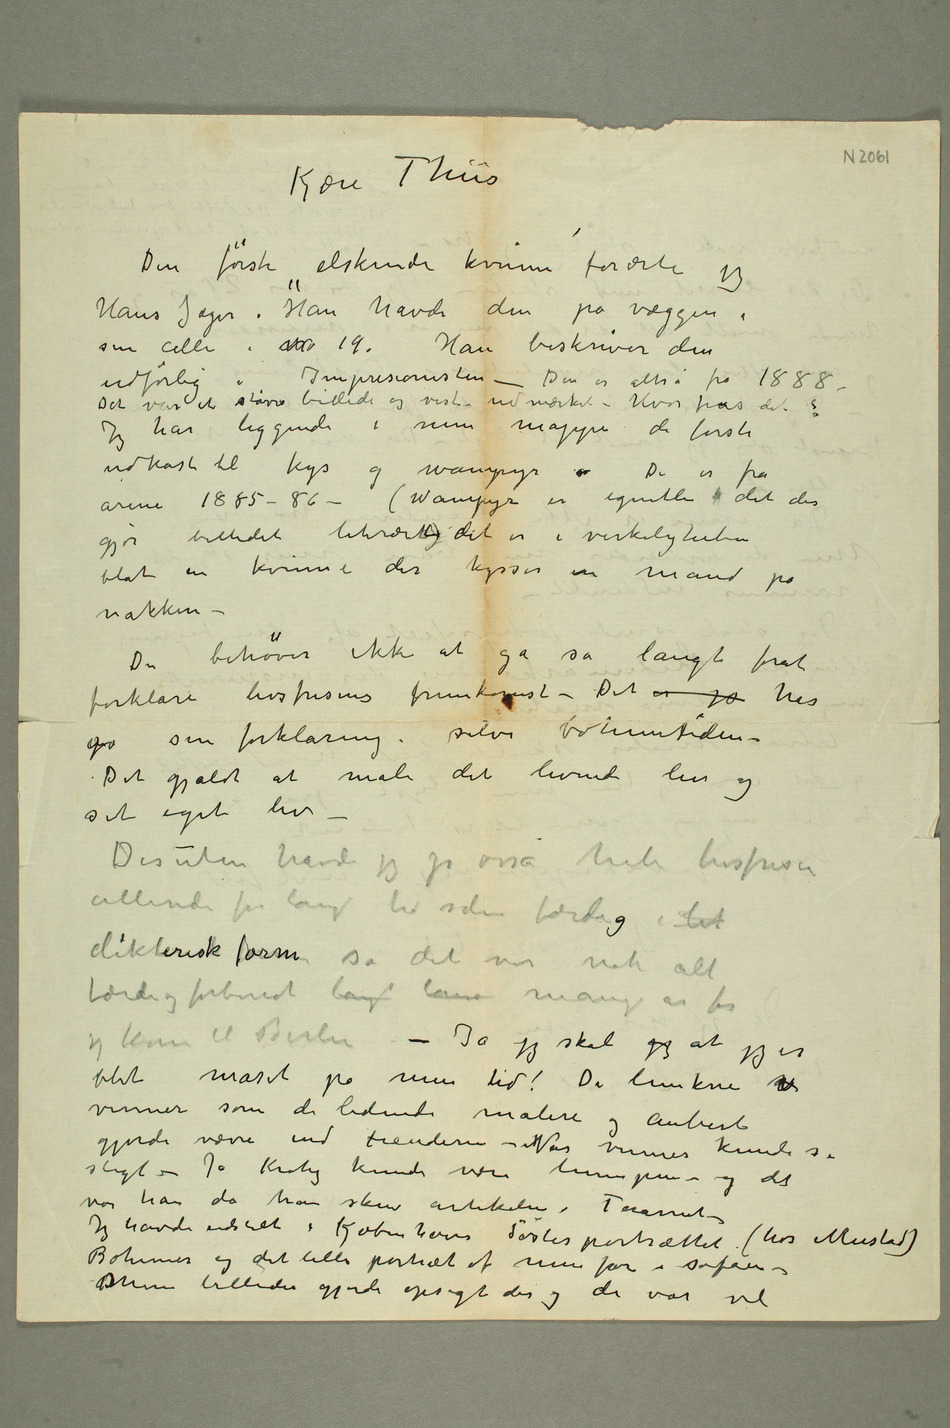 N 2061
Kjære Thiis
Den første elskende kvinne forærte jeg
Hans Jæger. Han havde den på væggen i
sin celle i no 19. Han beskriver den
udførlig i Impresionisten – Den er altså fra 1888 –
Det var et større billede og vist udmærket – Hvor er det?
Jeg har liggende i min mappe de første
udkast til kys og wampyr De er fra
årene 1885–86 – (Wampyr er egentlig det der
gjør billedet literært det er i virkeligheden
blot en kvinne der kysser en mand på
nakken –
Du behøver ikke at gå så langt for at
forklare livsfrisens fremkomst – Det er jo har
jo sin forklaring i selve bohemtiden –
Det gjaldt at male det levende liv og
sit eget liv –
Desuten havde jeg jo osså hele livsfrisen
allerede for lang tid siden færdig i let
dikterisk form så det var nok alt
færdig forberedt langt mange år før
jeg kom til Berlin – Ja jeg skal jeg at jeg er
blit maset på min tid! De
venner som de ledende malere og Aubert
gjorde være end fienderne – Når venner kunde si
sligt – Ja Krohg kunde være – og det
var han da han skrev artikelen i Taarnet –
Jeg havde udstilt i Kjøbenhavn Søsterportrættet (hos Mustad)
Bohemer og det lille portræt af min far i sofaen –
Mine billeder gjorde opsigt der og de var vel